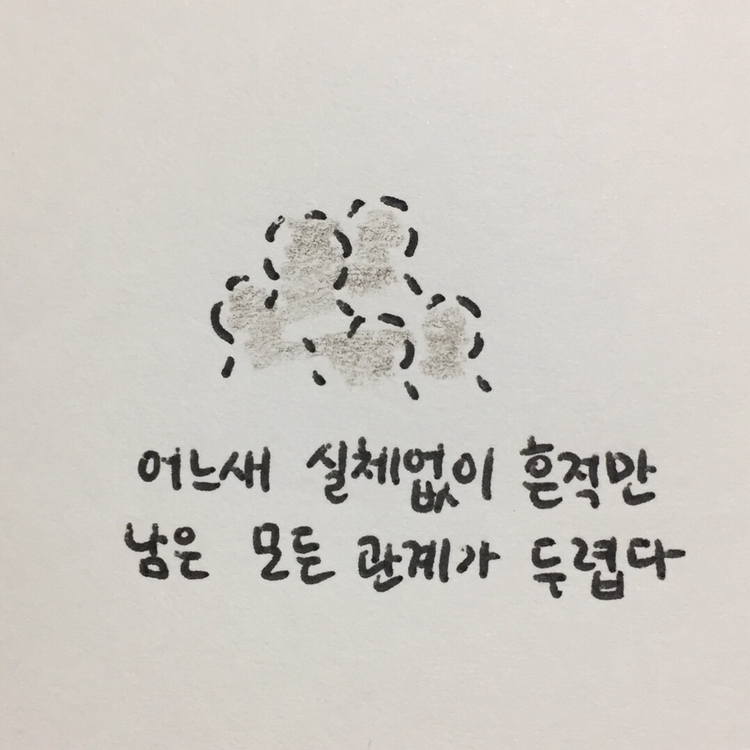 어느새 실체없이 흔적만
남은 모든 관계가 두렵다